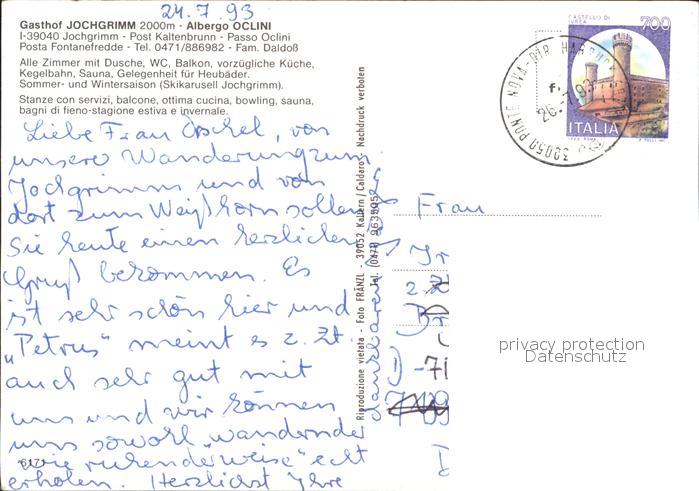 24.7.93
Gasthof JOCHGRIMM 2000m - Albergo OCLINI
I-39040 Jochgrimm - Post Kaltenbrunn - Passo Oclini
Posta Fontanefredde - Tel. 0471/886982 - Fam. Daldoß
Alle Zimmer mit Dusche, WC, Balkon, vorzügliche Küche,
Kegelbahn, Sauna, Gelegenheit für Heubäder.
Sommer- und Wintersaison (Skikarusell Jochgrimm).
Stanze con servizi, balcone, ottima cucina, bowling, sauna,
bagni di fieno-stagione estiva e invernale.
Liebe Frau von
unsere Wanderung zum
Jochgrimm und von
dort zum Weißhorn sollen
Sie heute einen herzlichen
Gruß bekommen. Es
ist sehr schön hier und
„Petrus" meint es z. Zt.
auch sehr gut mit
uns und wir können
uns sowohl „wandernder
wie ruhenderweise" echt
erholen. Herzlichst Ihre
dankbaren
6171
Riproduzione vietata - Foto FRÄNZL - 39052 Kaltern / Caldaro - Nachdruck verboten
Tel. (0471) 963805
CASTELLO DI
IVREA
700
ITALIA
39050 PONTE NOVA-BIR
26.7.93
Frau
D-71
privacy protection
Datenschutz